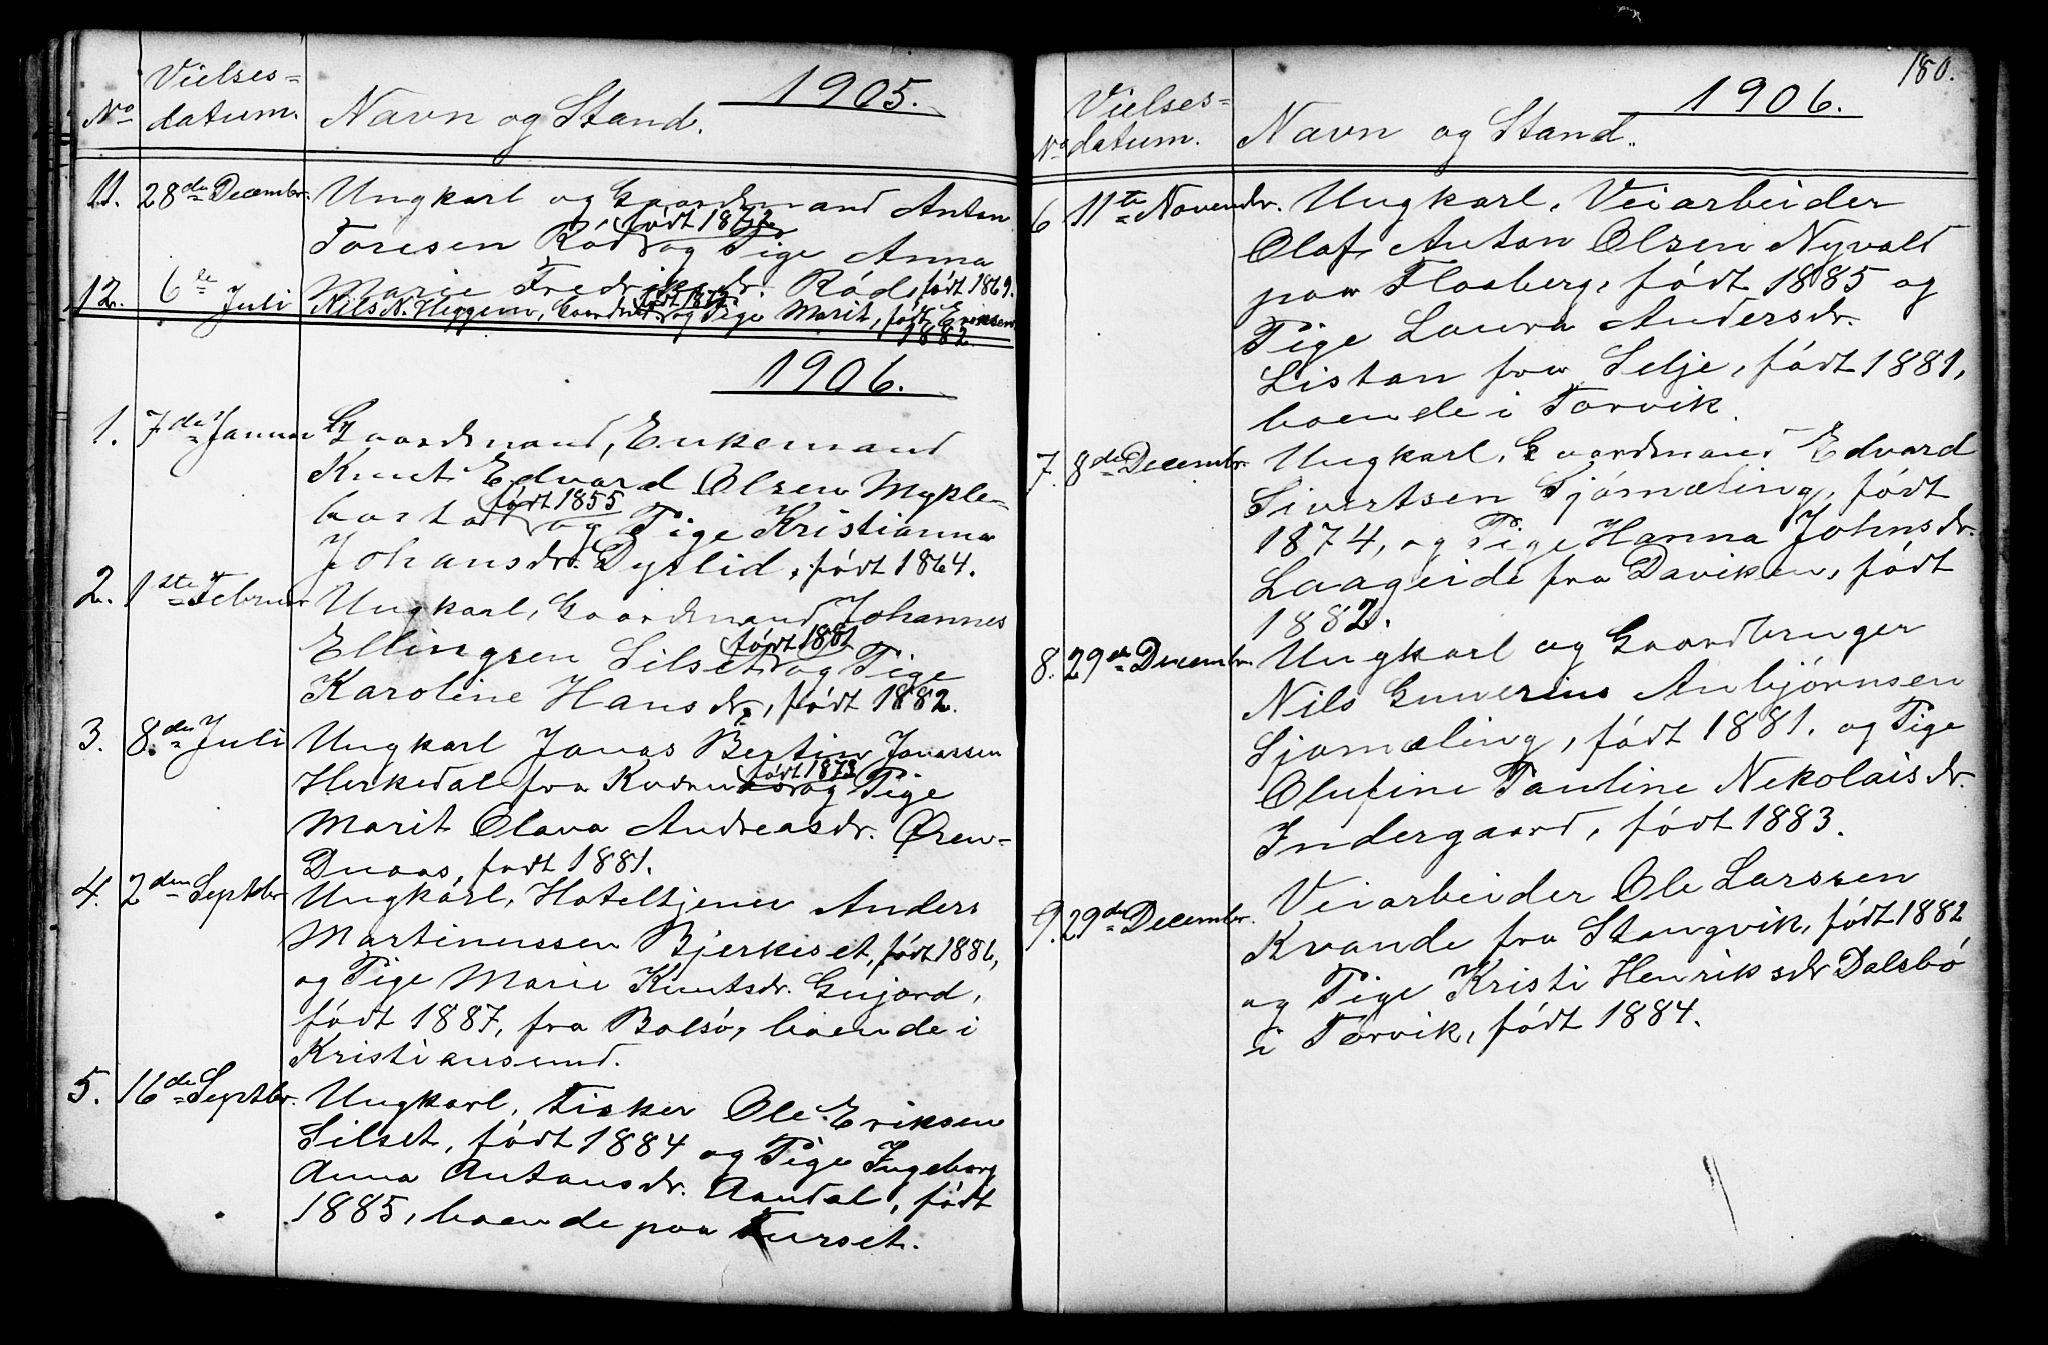 1905.
No Vielses-
datum. Navn og Stand.
11. 28de Decembr. Ungkarl og Gaardmand Anton
Toresen Röd, født 1872 og Pige Anna
Marie Fredriksdr. Röd, født 1869.
12. 6te Juli Nils N. Heggem, Gaardbr. født 1872. og Pige Marit, født Eriksen
1882.
1906.
1. 7de Januar Gaardmand, Enkemand
Knut Edvard Olsen Mykle-
bostad født 1855 og Pige Kristianna
Johansdr. Dyrlid, født 1864.
2. 1ste Februar Ungkarl, Gaardmand Johannes
Ellingsen Silset født 1881 og Pige
Karoline Hansdr., født 1882.
3. 8de Juli Ungkarl Jonas Bertin Jonassen
Herkedal fra født 1873 og Pige
Marit Olava Andreasdr. Øren-
født 1881.
4. 2den Septbr Ungkarl, Hoteltjener Anders
Martinussen Bjerkeset, født 1886,
og Pige Marie Knutsdr. Gujord,
født 1887, fra Bolsö, boende i
Kristiansund.
5. 16de Septbr. Ungkarl, Fisker Ole Eriksen
Silset, født 1884 og Pige Ingeborg
Anna Antonsdr. Aandal, født
1885, boende paa Furset.
180.
1906.
No Vielses-
datum. Navn og Stand.
6 11te Novembr. Ungkarl, Veiarbeider
Olaf Anton Olsen Nyvold
paa Flosberg, født 1885 og
Pige Laura Andersdr.
Listan fra Selje, født 1881,
boende i Torvik.
7. 8de Decembr. Ungkarl, Gaardmand Edvard
Sivertsen Sjömæling, født
1874, og Pige Hanna Johnsdr.
Laageide fra Daviken, født
1882.
8. 29de Decembr. Ungkarl og Gaardbruger
Nils Gunerius Anbjörnsen
Sjömæling, født 1881. og Pige
Olufine Pauline Nekolaisdr.
Indergaard, født 1883.
9. 29de Decembr. Veiarbeider Ole Larssen
Kvande fra Stangvik, født 1882
og Pige Kristi Henriksdr Dalsbö
i Torvik, født 1884.